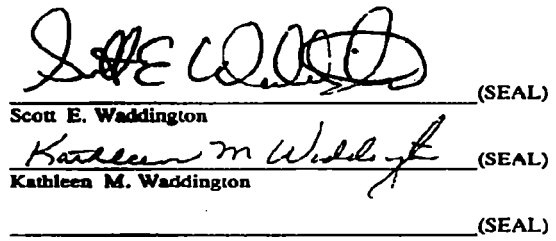 Scott E Waddington
(SEAL)
Scott E. Waddington
Kathleen M Waddington (SEAL)
Kathleen M. Waddington
(SEAL)